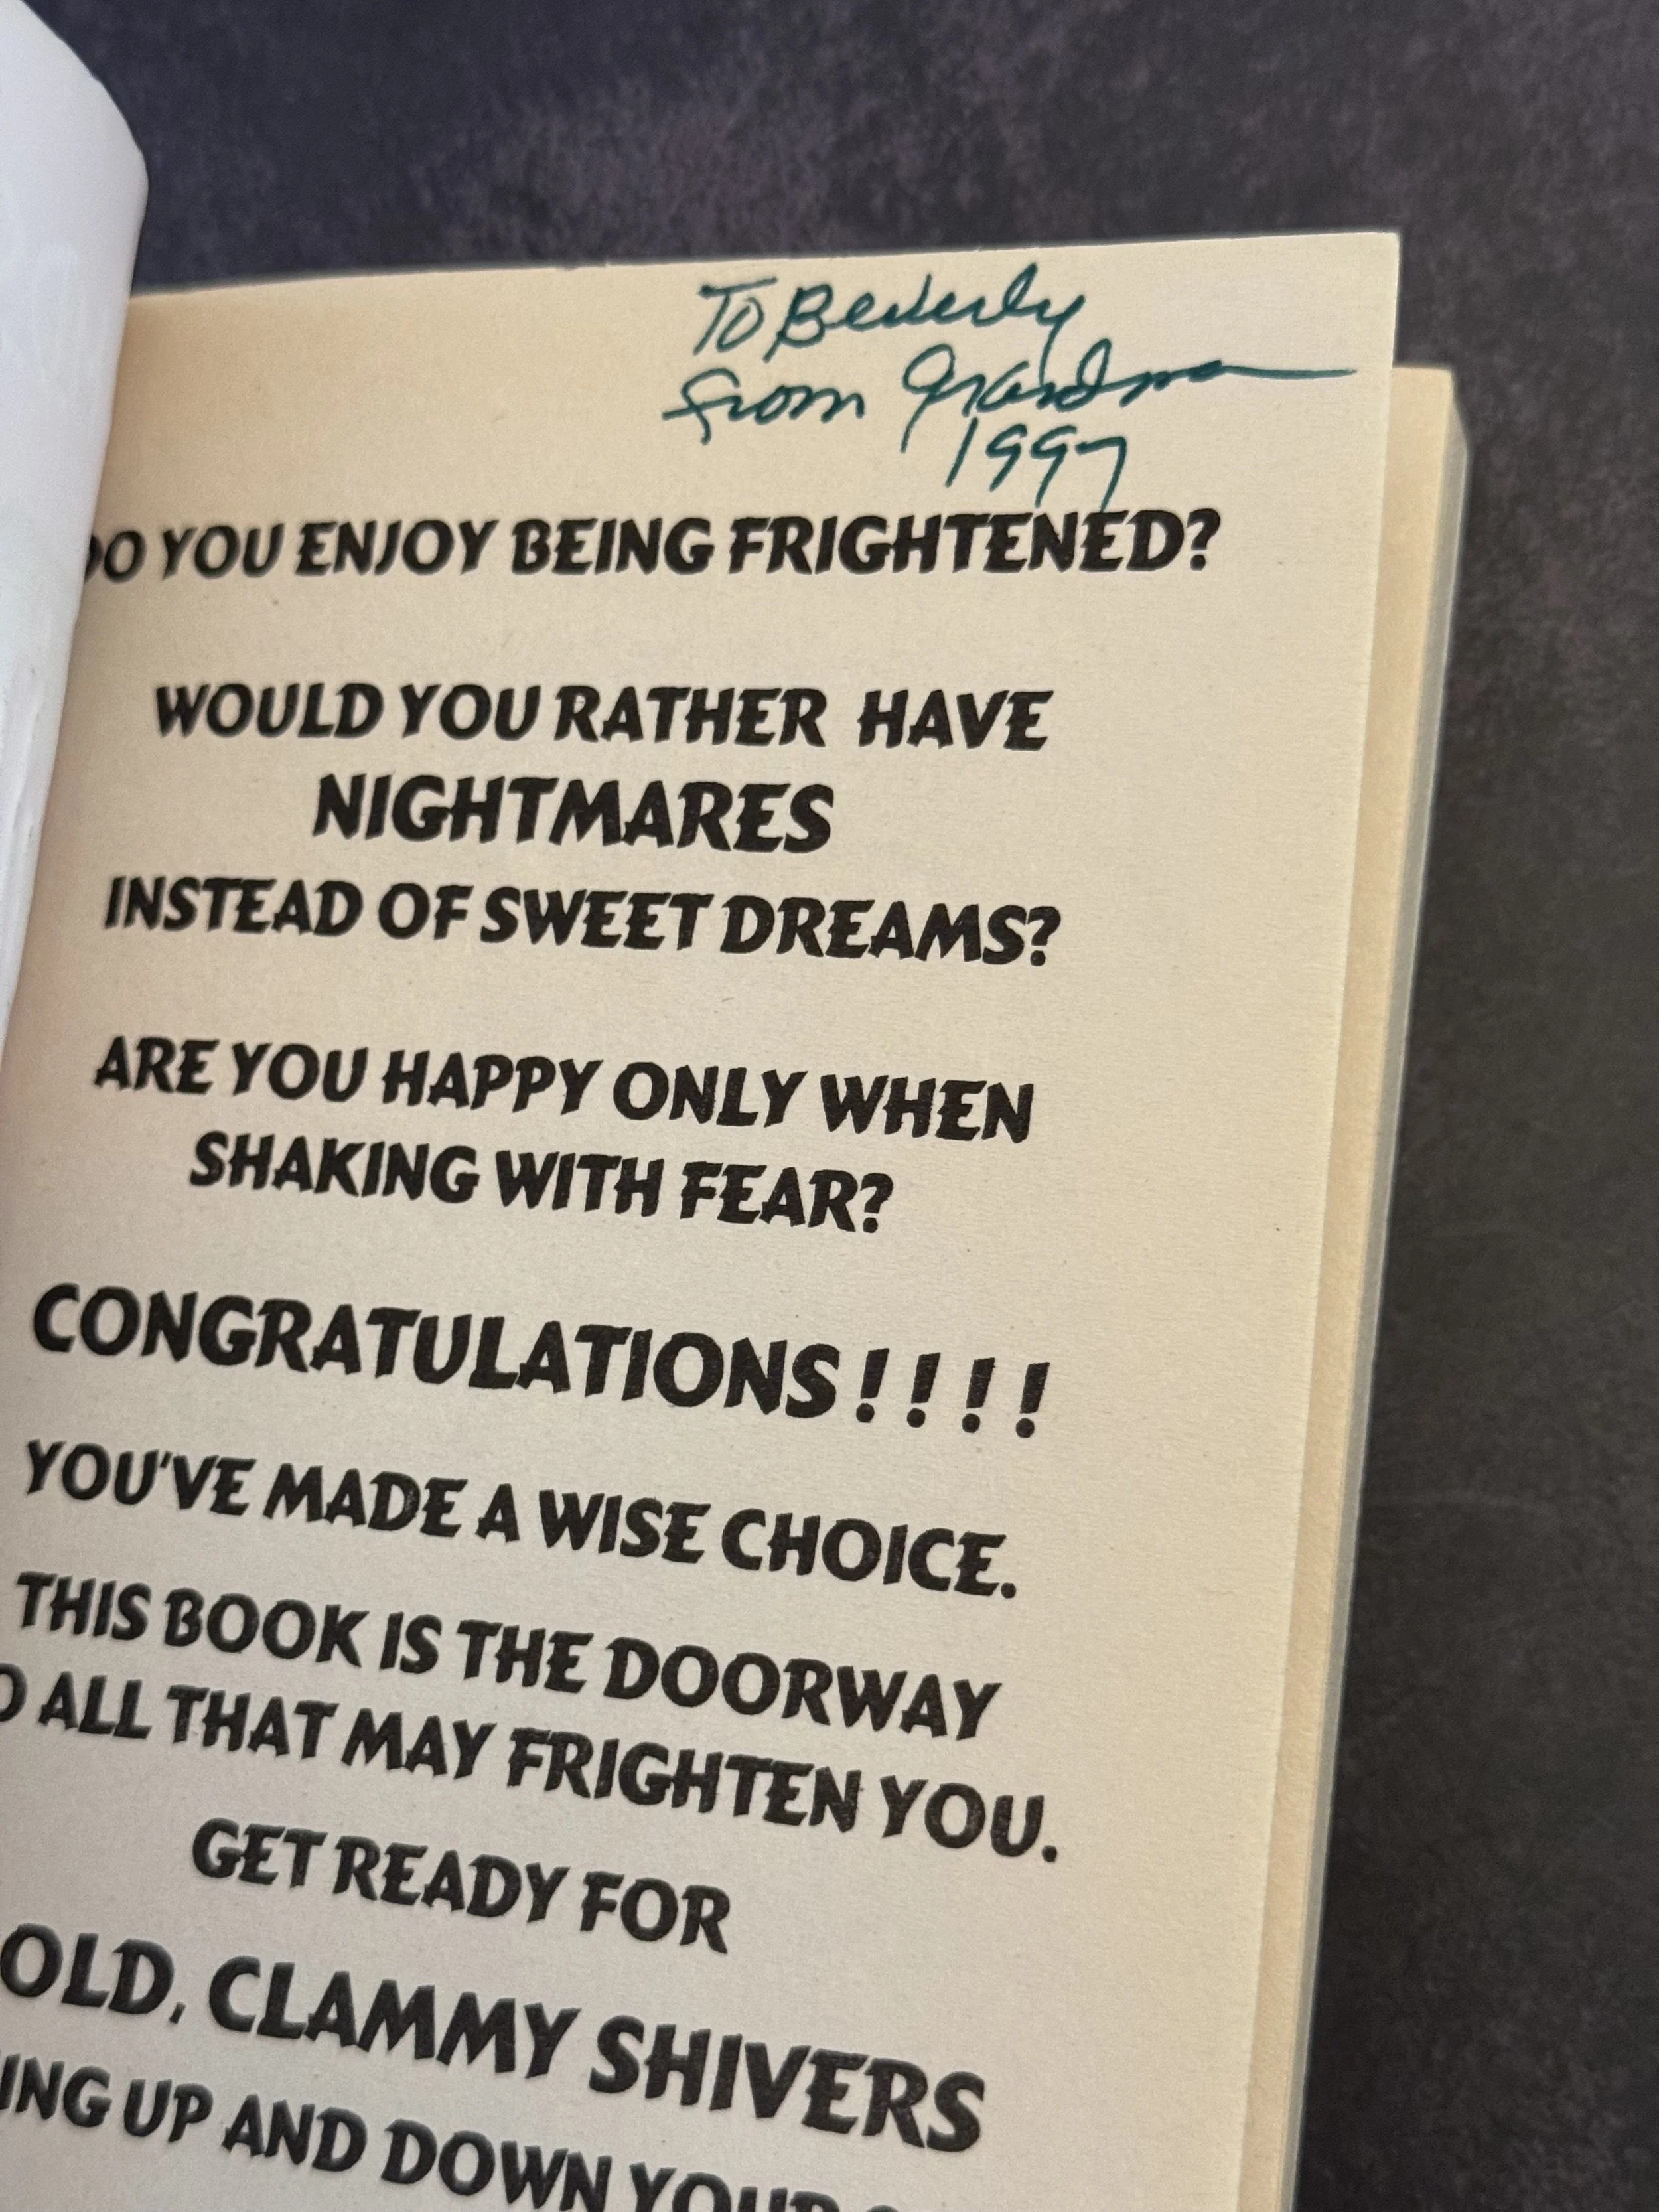 To Beverly
from Grandma
1997
DO YOU ENJOY BEING FRIGHTENED?
WOULD YOU RATHER HAVE
NIGHTMARES
INSTEAD OF SWEET DREAMS?
ARE YOU HAPPY ONLY WHEN
SHAKING WITH FEAR?
CONGRATULATIONS!!!!
YOU'VE MADE A WISE CHOICE.
THIS BOOK IS THE DOORWAY
ALL THAT MAY FRIGHTEN YOU.
GET READY FOR
OLD, CLAMMY SHIVERS
ING UP AND DOWN YOUR